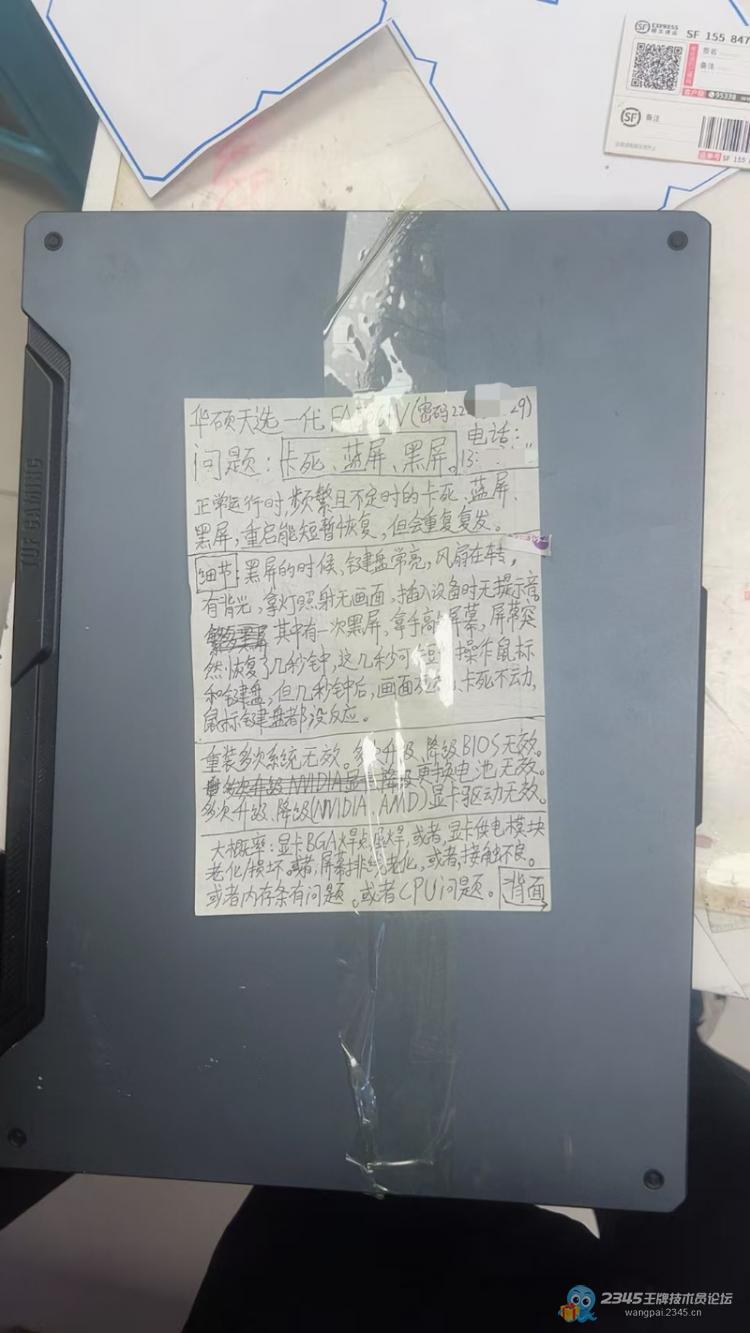 SF EXPRESS
SF 155 847
签名
备注
95338
SF
备注
SF 155
TUF GAMING
华硕天选一代 (密码22 29)
电话:
问题:卡死、蓝屏、黑屏。13
正常运行时,频繁且不定时的卡死、蓝屏、
黑屏,重启能短暂恢复,但会重复复发。
细节:黑屏的时候,键盘常亮,风扇在转,
有背光,拿灯照射无画面,插入设备时无提示音
其中有一次黑屏,拿手敲屏幕,屏幕突
然恢复了几秒钟,这几秒可短 操作鼠标
和键盘,但几秒钟后,画面 卡死不动,
鼠标键盘都没反应。
重装多次系统无效。多 升级、降级BIOS无效。
更换电池无效。
多次升级、降级(NVIDIA AMD)显卡驱动无效。
大概率:显卡BGA焊点虚焊,或者,显卡供电模块
老化/损坏。或者,屏幕排线老化,或者,接触不良。
或者内存条有问题。或者CPU问题。背面
2345王牌技术员论坛
wangpai.2345.cn